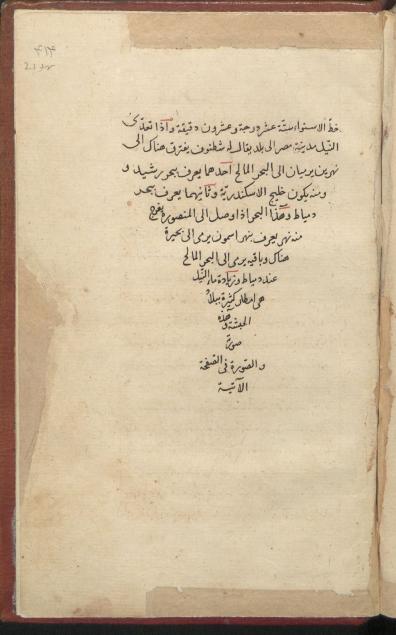 خط الاستواء ستة عشر درجة وعشرون دقيقة واذا تعدى
النيل مدينة مصر الى بلد يقال له شطنوف يفترق هناك الى
نهرين يرميان الى البحر المالح احدهما يعرف ببحر رشيد و
ومنه يكون خليج الاسكندرية وثانيهما يعرف ببحر
دمياط وهذا البحر اذا وصل الى المنصورة يخرج
منه نهر يعرف بنهر اسمون يرمى الى بحيرة
هناك وباقيه يرمى الى البحر المالح
عند دمياط وزيادة ماء النيل
هى امطار كثيرة ببلاد
الحبشة وهذه
صورة
والصورة فى الصفحة
الآتية